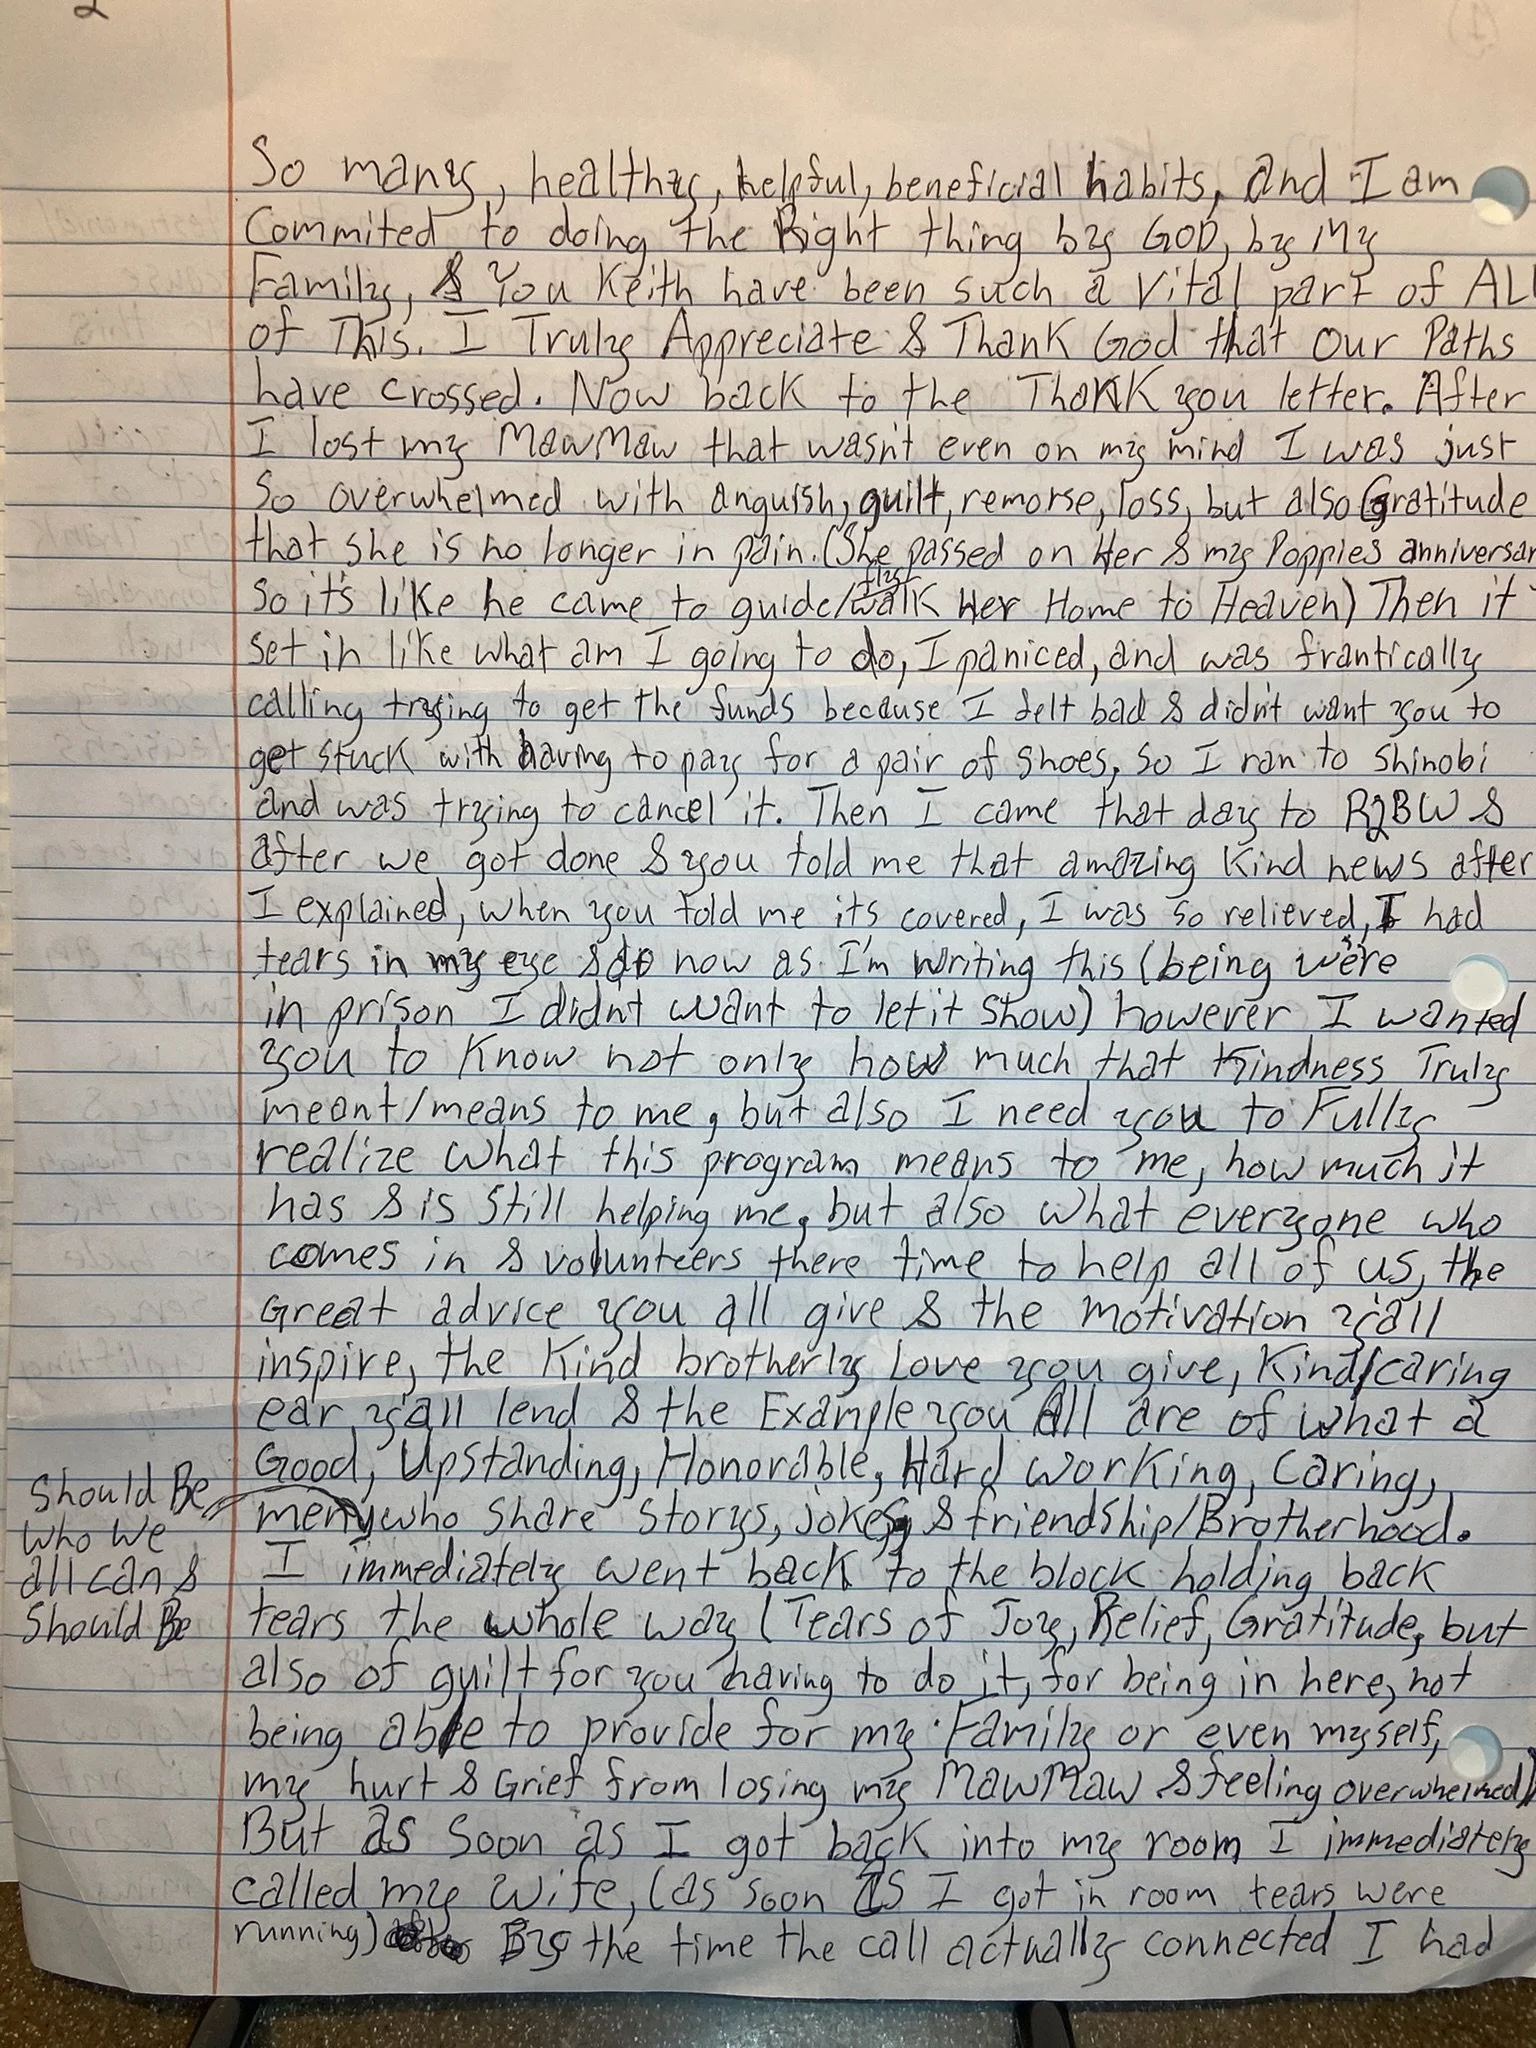 2
So many, healthy, helpful, beneficial habits, and I am
Commited to doing the Right thing by GOD, by My
Family, & You Keith have been such a Vital part of ALL
of This. I Truly Appreciate & Thank God that our Paths
have crossed. Now back to the ThaNK you letter. After
I lost my MawMaw that wasn't even on my mind I was just
So overwhelmed with anguish, guilt, remorse, loss, but also Gratitude
that she is no longer in pain. (She passed on Her & my Poppies anniversar
So it's like he came to guide/walk Her Home to Heaven) Then it
fly
set in like what am I going to do, I paniced, and was frantically
calling trying to get the funds because I felt bad & didn't want you to
get stuck with having to pay for a pair of shoes, so I ran to Shinobi
and was trying to cancel it. Then I came that day to R2BW &
after we got done & you told me that amazing Kind news after
I explained, when you told me its covered, I was so relieved, I had
tears in my eye & do now as I'm writing this (being we're
in prison I didn't want to let it show) however I wanted
you to Know not only how much that Kindness Truly
meant/means to me, but also I need you to Fully
realize what this program means to me, how much it
has & is still helping me, but also what everyone who
comes in & volunteers there time to help all of us, the
Great advice you all give & the motivation y'all
inspire, the Kind brotherly Love you give, Kind/caring
ear y'all lend & the Example you All are of what a
Good, Upstanding, Honorable, Hard working, Caring,
men who share storys, jokes, & friendship/Brotherhood.
Should Be
who we
all can &
Should Be
I immediately went back to the block holding back
tears the whole way (Tears of Joy, Relief, Gratitude, but
also of guilt for you having to do it, for being in here, not
being able to provide for my Family or even myself,
my hurt & Grief from losing my MawMaw & feeling overwhelmed)
But as soon as I got back into my room I immediately
called my wife, (as soon as I got in room tears were
running) By the time the call actually connected I had